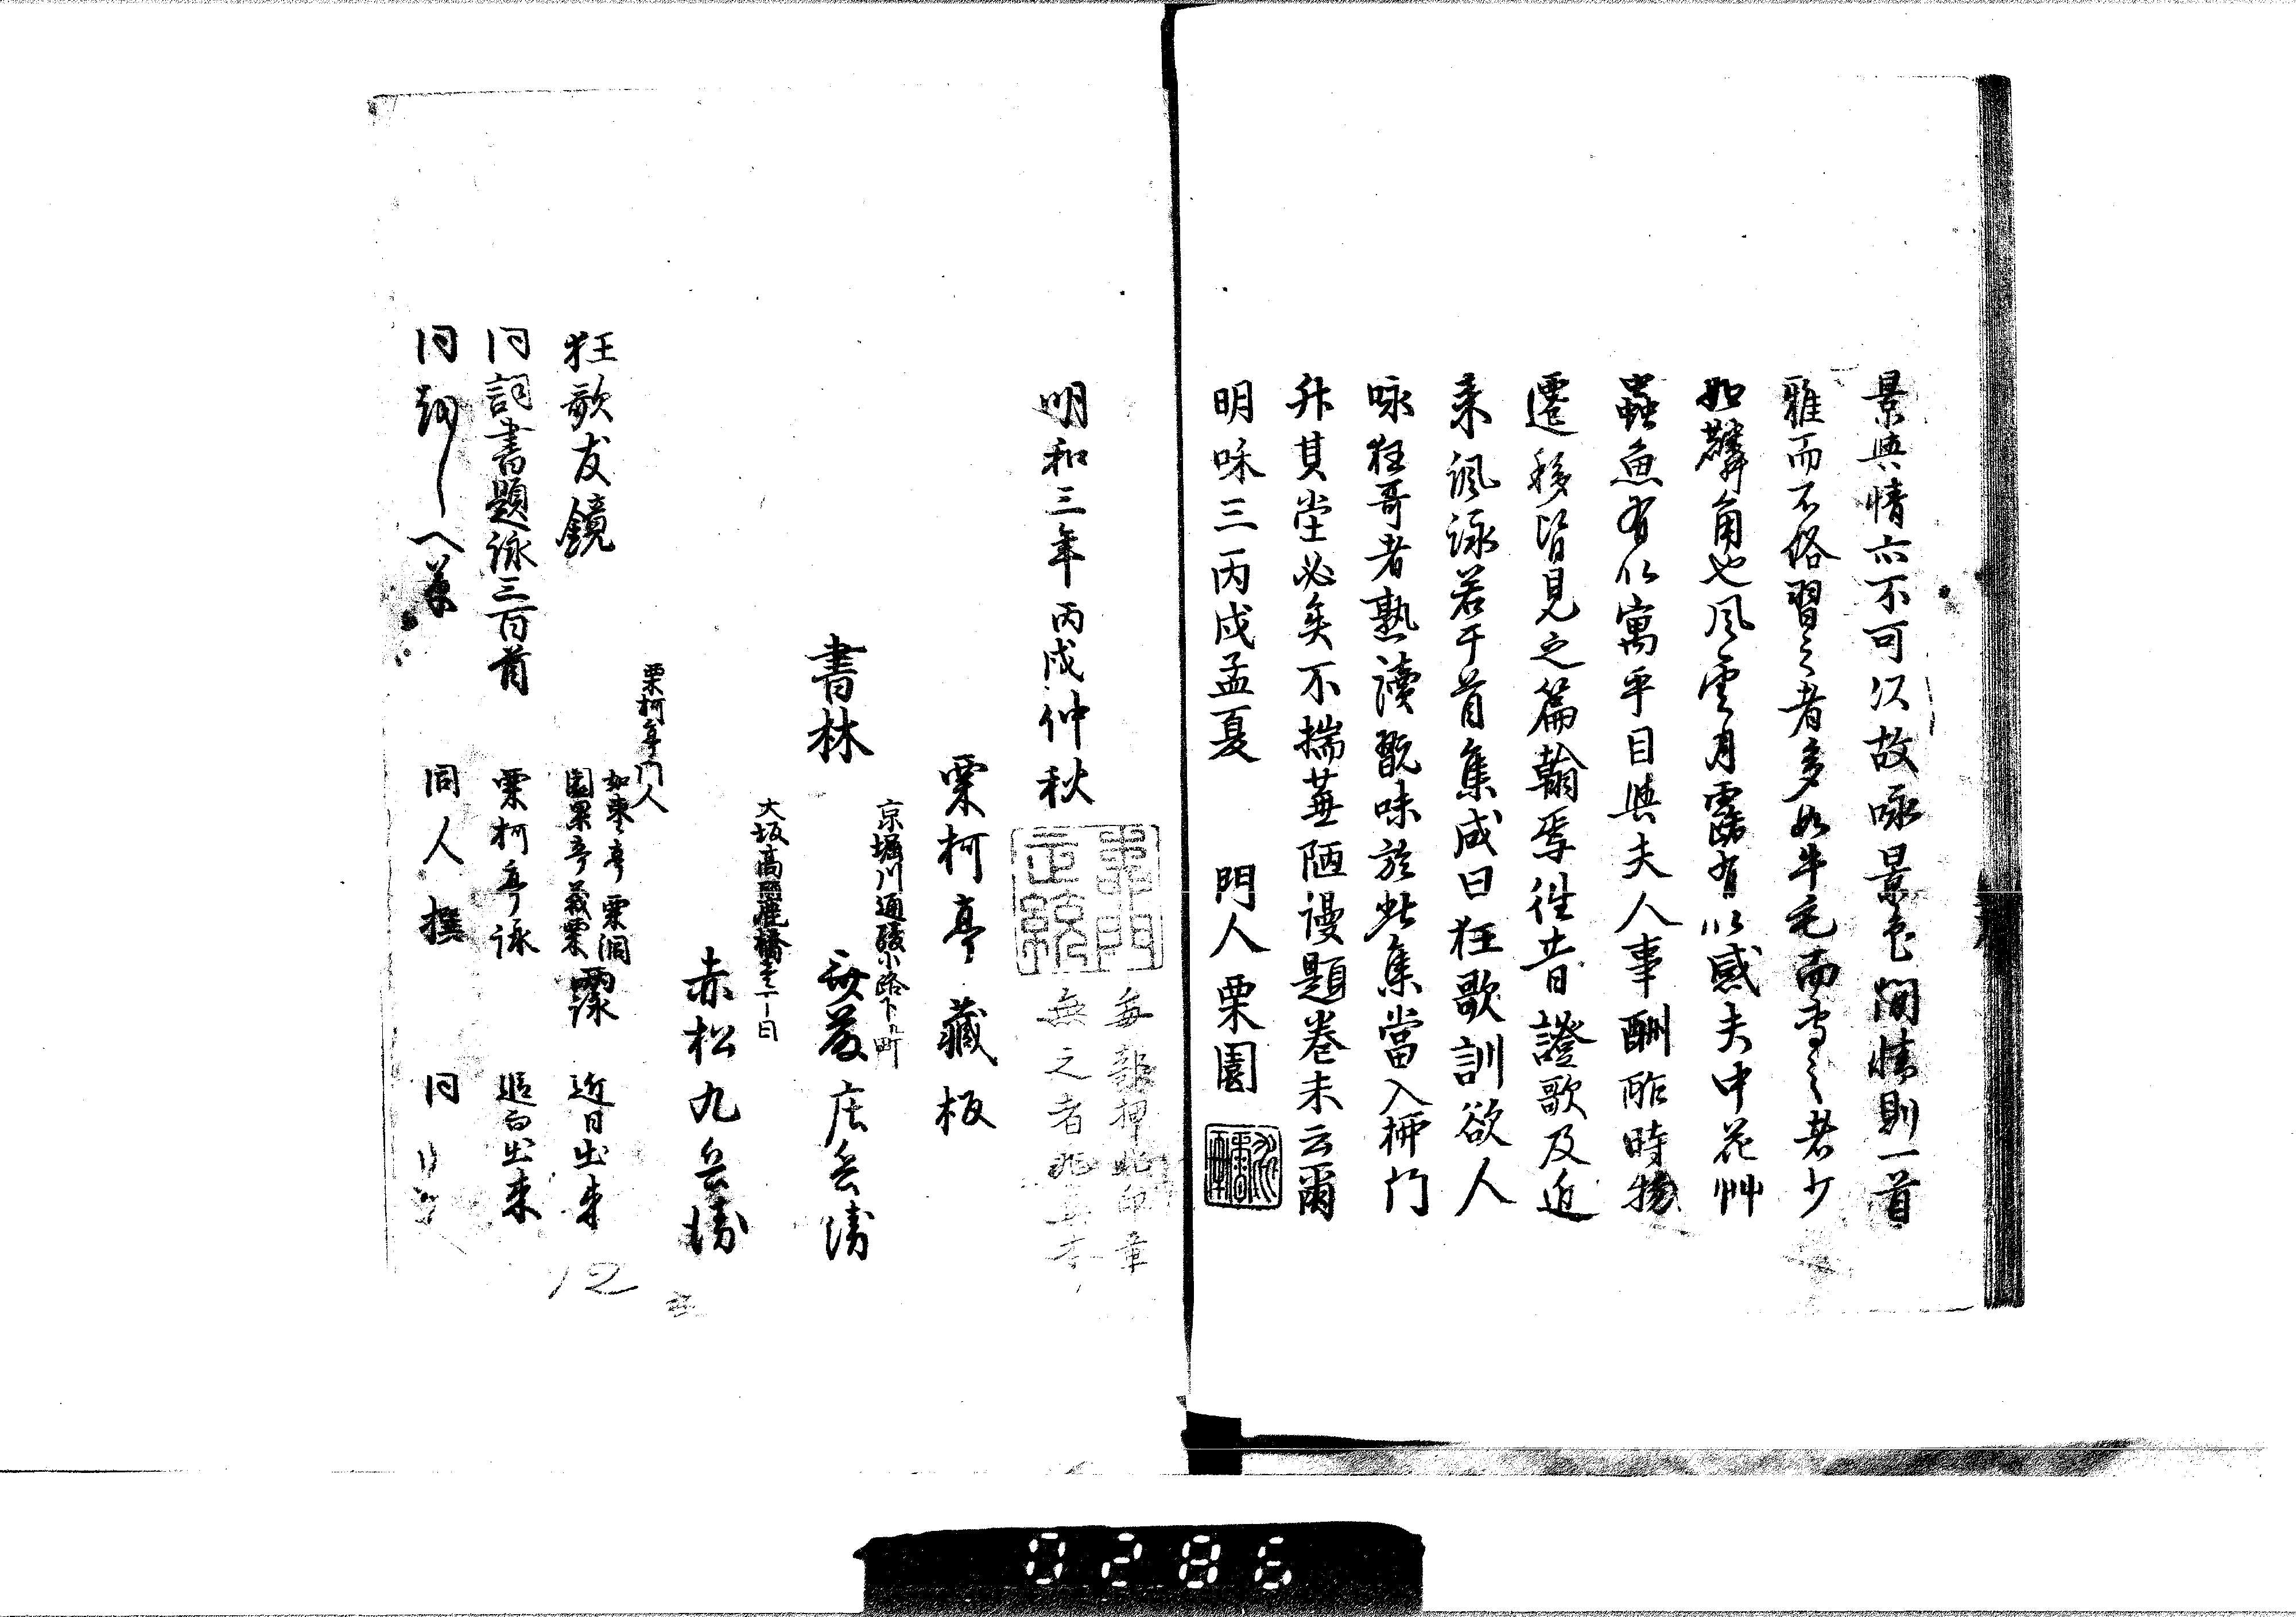 景與情亦不可以故咏景色閑情則一首
雅而不俗習之者多如牛毛而専之者少
如麟角也風雲月露有以感夫中花艸
蟲魚有以寓乎目與夫人事酬酢時物
遷移皆見之篇翰焉徃昔證歌及近
来諷詠若干首集成曰狂歌訓欲人
咏狂哥者熟讀翫味於此集當入柳门
升其堂必矣不揣蕪陋謾題巻末云爾
明咊三丙戌孟夏 門人栗園
明和三年丙戌仲秋
毎部押此印章
無之者非真本
栗柯亭藏板
書林
京堀川通綾小路下町
庄兵衛
大坂高麗橋壱丁目
赤松九兵衛
栗柯亭门人
狂歌友鏡
如棗亭栗洞
園果亭義栗
両詠
近日出来
同詞書題詠三百首 栗柯亭詠 追而出来
同 同人撰 同
12
0286